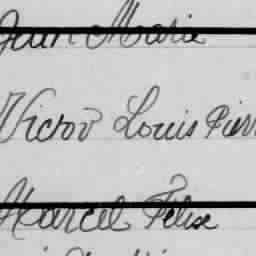 Jean Marie
Victor Louis Pierr
Marcel Felise